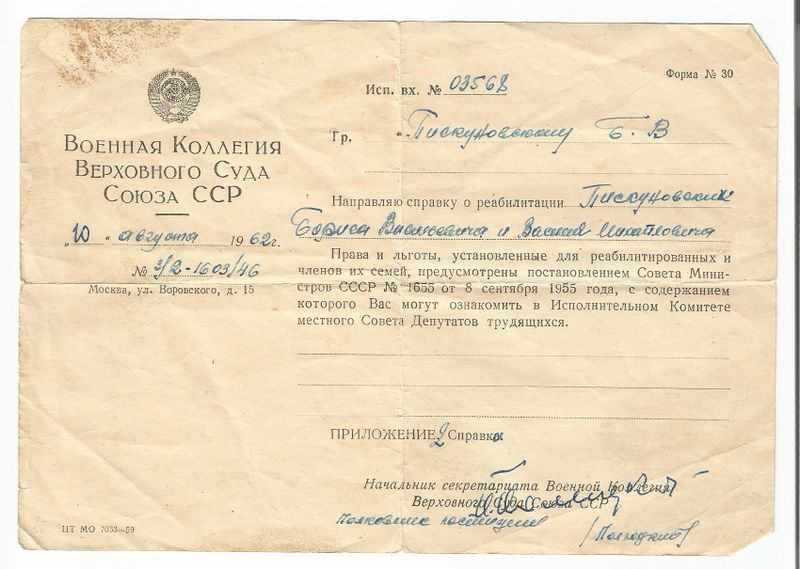 Форма № 30
Исп. вх. № 03568
ВОЕННАЯ КОЛЛЕГИЯ
ВЕРХОВНОГО СУДА
СОЮЗА ССР
„10" августа 1962г.
№ 3/2-1603/46
Москва, ул. Воровского, д. 15
Гр. Пискуновскому Б. В
Направляю справку о реабилитации Пискуновских
Бориса Васильевича и Василия Михайловича
Права и льготы, установленные для реабилитированных и
членов их семей, предусмотрены постановлением Совета Мини-
стров СССР № 1655 от 8 сентября 1955 года, с содержанием
которого Вас могут ознакомить в Исполнительном Комитете
местного Совета Депутатов трудящихся.
ПРИЛОЖЕНИЕ: 2 Справки
Начальник секретариата Военной Коллегии
Верховного Суда Союза ССР
Полковник юстиции
ЦТ МО 7033—59